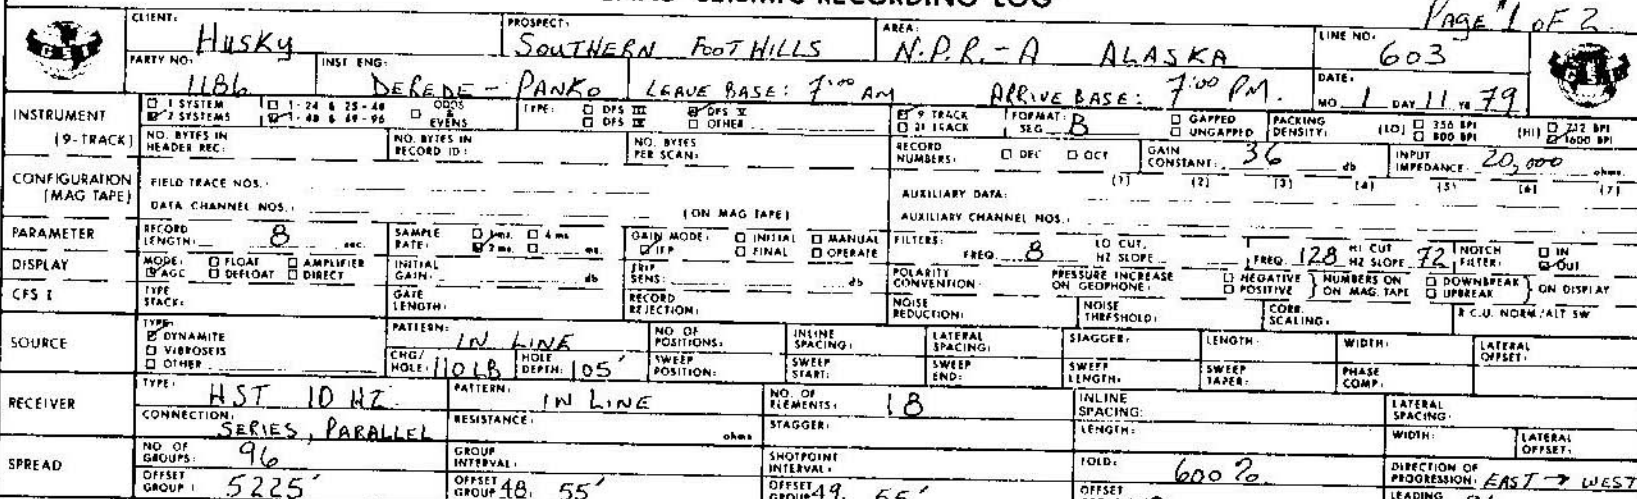 SEISMIC RECORDING LOG
PAGE #1 OF 2
GSI
CLIENT: Husky
PROSPECT: SOUTHERN FOOTHILLS
AREA: N.P.R.-A ALASKA
LINE NO. 603
GSI
PARTY NO: 1186
INST ENG: DEREDE - PANKO
LEAVE BASE: 7:00 AM
ARRIVE BASE: 7:00 PM.
DATE: MO. 1 DAY 11 YR 79
INSTRUMENT (9-TRACK)
1 SYSTEM 2 SYSTEMS
1-24 & 25-48 1-48 & 49-96
ODDS & EVENS
TYPE: DFS III DFS IV DFS V OTHER
9 TRACK 21 TRACK
FORMAT: SEG B
GAPPED UNGAPPED
PACKING DENSITY: (LO) 356 BPI 800 BPI (HI) 712 BPI 1600 BPI
NO. BYTES IN HEADER REC:
NO. BYTES IN RECORD ID:
NO. BYTES PER SCAN:
RECORD NUMBERS: DEC OCT
GAIN CONSTANT: 36 db
INPUT IMPEDANCE: 20,000 ohms.
CONFIGURATION (MAG TAPE)
FIELD TRACE NOS.:
DATA CHANNEL NOS.: (ON MAG TAPE)
AUXILIARY DATA: (1) (2) (3) (4) (5) (6) (7)
AUXILIARY CHANNEL NOS.:
PARAMETER
RECORD LENGTH: 8 sec.
SAMPLE RATE: 1 ms. 4 ms 2 ms. ms.
GAIN MODE: INITIAL MANUAL IFP FINAL OPERATE
FILTERS: FREQ. 8 LO CUT, HZ SLOPE
FREQ. 128 HI CUT HZ SLOPE 72
NOTCH FILTER: IN OUT
DISPLAY
MODE: FLOAT AMPLIFIER AGC DEFLOAT DIRECT
INITIAL GAIN: db
TRIP SENS: db
POLARITY CONVENTION:
PRESSURE INCREASE ON GEOPHONE:
NEGATIVE POSITIVE } NUMBERS ON MAG. TAPE
DOWNBREAK UPBREAK } ON DISPLAY
CFS I
TYPE STACK:
GATE LENGTH:
RECORD REJECTION:
NOISE REDUCTION:
NOISE THRESHOLD:
CORR. SCALING:
R.C.U. NORM/ALT SW
SOURCE
TYPE: DYNAMITE VIBROSEIS OTHER
PATTERN: IN LINE
NO OF POSITIONS:
INLINE SPACING:
LATERAL SPACING:
STAGGER:
LENGTH:
WIDTH:
LATERAL OFFSET:
CHG/HOLE: 110 LB
HOLE DEPTH: 105'
SWEEP POSITION:
SWEEP START:
SWEEP END:
SWEEP LENGTH:
SWEEP TAPER:
PHASE COMP:
RECEIVER
TYPE: HST 10 HZ.
PATTERN: IN LINE
NO. OF ELEMENTS: 18
INLINE SPACING:
LATERAL SPACING:
CONNECTION: SERIES, PARALLEL
RESISTANCE: ohms
STAGGER:
LENGTH:
WIDTH:
LATERAL OFFSET:
SPREAD
NO OF GROUPS: 96
GROUP INTERVAL:
SHOTPOINT INTERVAL:
FOLD: 600%
DIRECTION OF PROGRESSION: EAST → WEST
OFFSET GROUP 1 5225'
OFFSET GROUP 48, 55'
OFFSET GROUP 49, 55'
OFFSET
LEADING